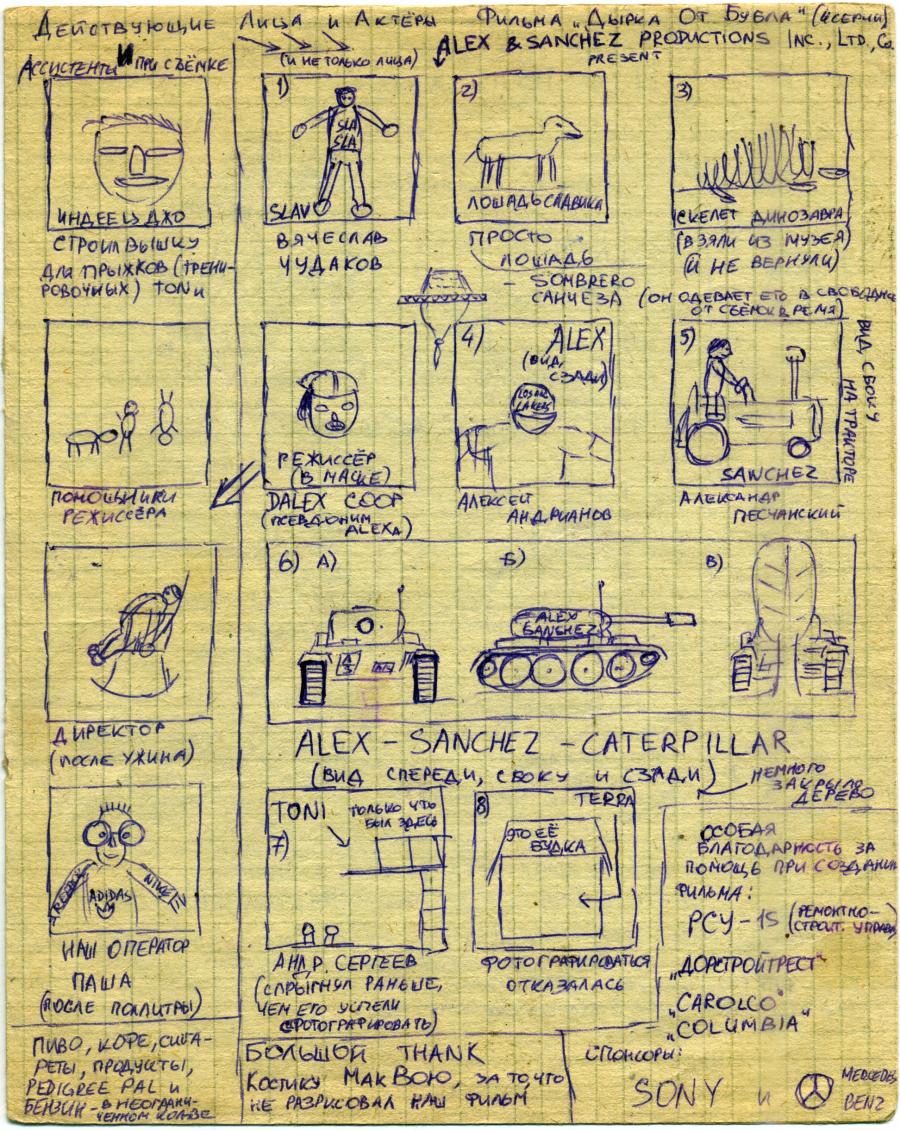 Действующие Лица и Актёры Фильма „Дырка От Бубла"
ALEX & SANCHEZ PRODUCTIONS INC., LTD., Co.
PRESENT
(и не только лица)
Ассистенты И при съёмке
ИНДЕЕЦ ДЖО
СТРОИЛ ВЫШКУ
ДЛЯ ПРЫЖКОВ (ТРЕНИ-
РОВОЧНЫХ) TONи
1)
SLA
SLA
SLAV
ВЯЧЕСЛАВ
ЧУДАКОВ
2)
ЛОШАДЬ СЛАВИКА
ПРОСТО
ЛОШАДЬ
3)
СКЕЛЕТ ДИНОЗАВРА
(ВЗЯЛИ ИЗ МУЗЕЯ)
(И НЕ ВЕРНУЛИ)
- SOMBRERO
САНЧЕЗА (ОН ОДЕВАЕТ ЕГО В СВОБОДНОЕ
ОТ СЪЁМОК ВРЕМЯ)
ПОМОШНИКИ
РЕЖИССЁРА
РЕЖИССЁР
(В МАСКЕ)
DALEX COOP
(ПСЕВДОНИМ
ALEXА)
4) ALEX
(ВИД
СЗАДИ)
LOS AN.
LAKERS
АЛЕКСЕЙ
АНДРИАНОВ
5)
SANCHEZ
АЛЕКСАНДР
ПЕСЧАНСКИЙ
ВИД СБОКУ
НА ТРАКТОРЕ
ДИРЕКТОР
(ПОСЛЕ УЖИНА)
6) А) Б) В)
ALEX
SANCHEZ
ALEX - SANCHEZ - CATERPILLAR
(ВИД СПЕРЕДИ, СБОКУ И СЗАДИ)
НЕМНОГО
ЗАКРЫЛО
ДЕРЕВО
REEBOK
ADIDAS
NIKE
НАШ ОПЕРАТОР
ПАША
(ПОСЛЕ ПОЛЛИТРЫ)
TONI
ТОЛЬКО ЧТО
БЫЛ ЗДЕСЬ
7)
АНДР. СЕРГЕЕВ
(СПРЫГНУЛ РАНЬШЕ,
ЧЕМ ЕГО УСПЕЛИ
СФОТОГРАФИРОВАТЬ)
8 TERRA
ЭТО ЕЁ
БУДКА
ФОТОГРАФИРОВАТЬСЯ
ОТКАЗАЛАСЬ
ОСОБАЯ
БЛАГОДАРНОСТЬ ЗА
ПОМОЩЬ ПРИ СОЗДАНИИ
ФИЛЬМА:
РСУ-15 (РЕМОНТНО-
СТРОИТ. УПРАВ.)
„ДОРСТРОЙТРЕСТ"
„CAROLCO"
„COLUMBIA"
ПИВО, КОФЕ, СИГА-
РЕТЫ, ПРОДУКТЫ,
PEDIGREE PAL И
БЕНЗИН - В НЕОГРАНИ-
ЧЕННОМ КОЛ-ВЕ
БОЛЬШОЙ THANK
КОСТИКУ МАКВОЮ, ЗА ТО, ЧТО
НЕ РАЗРИСОВАЛ НАШ ФИЛЬМ
СПОНСОРЫ:
SONY И MERCEDES
BENZ